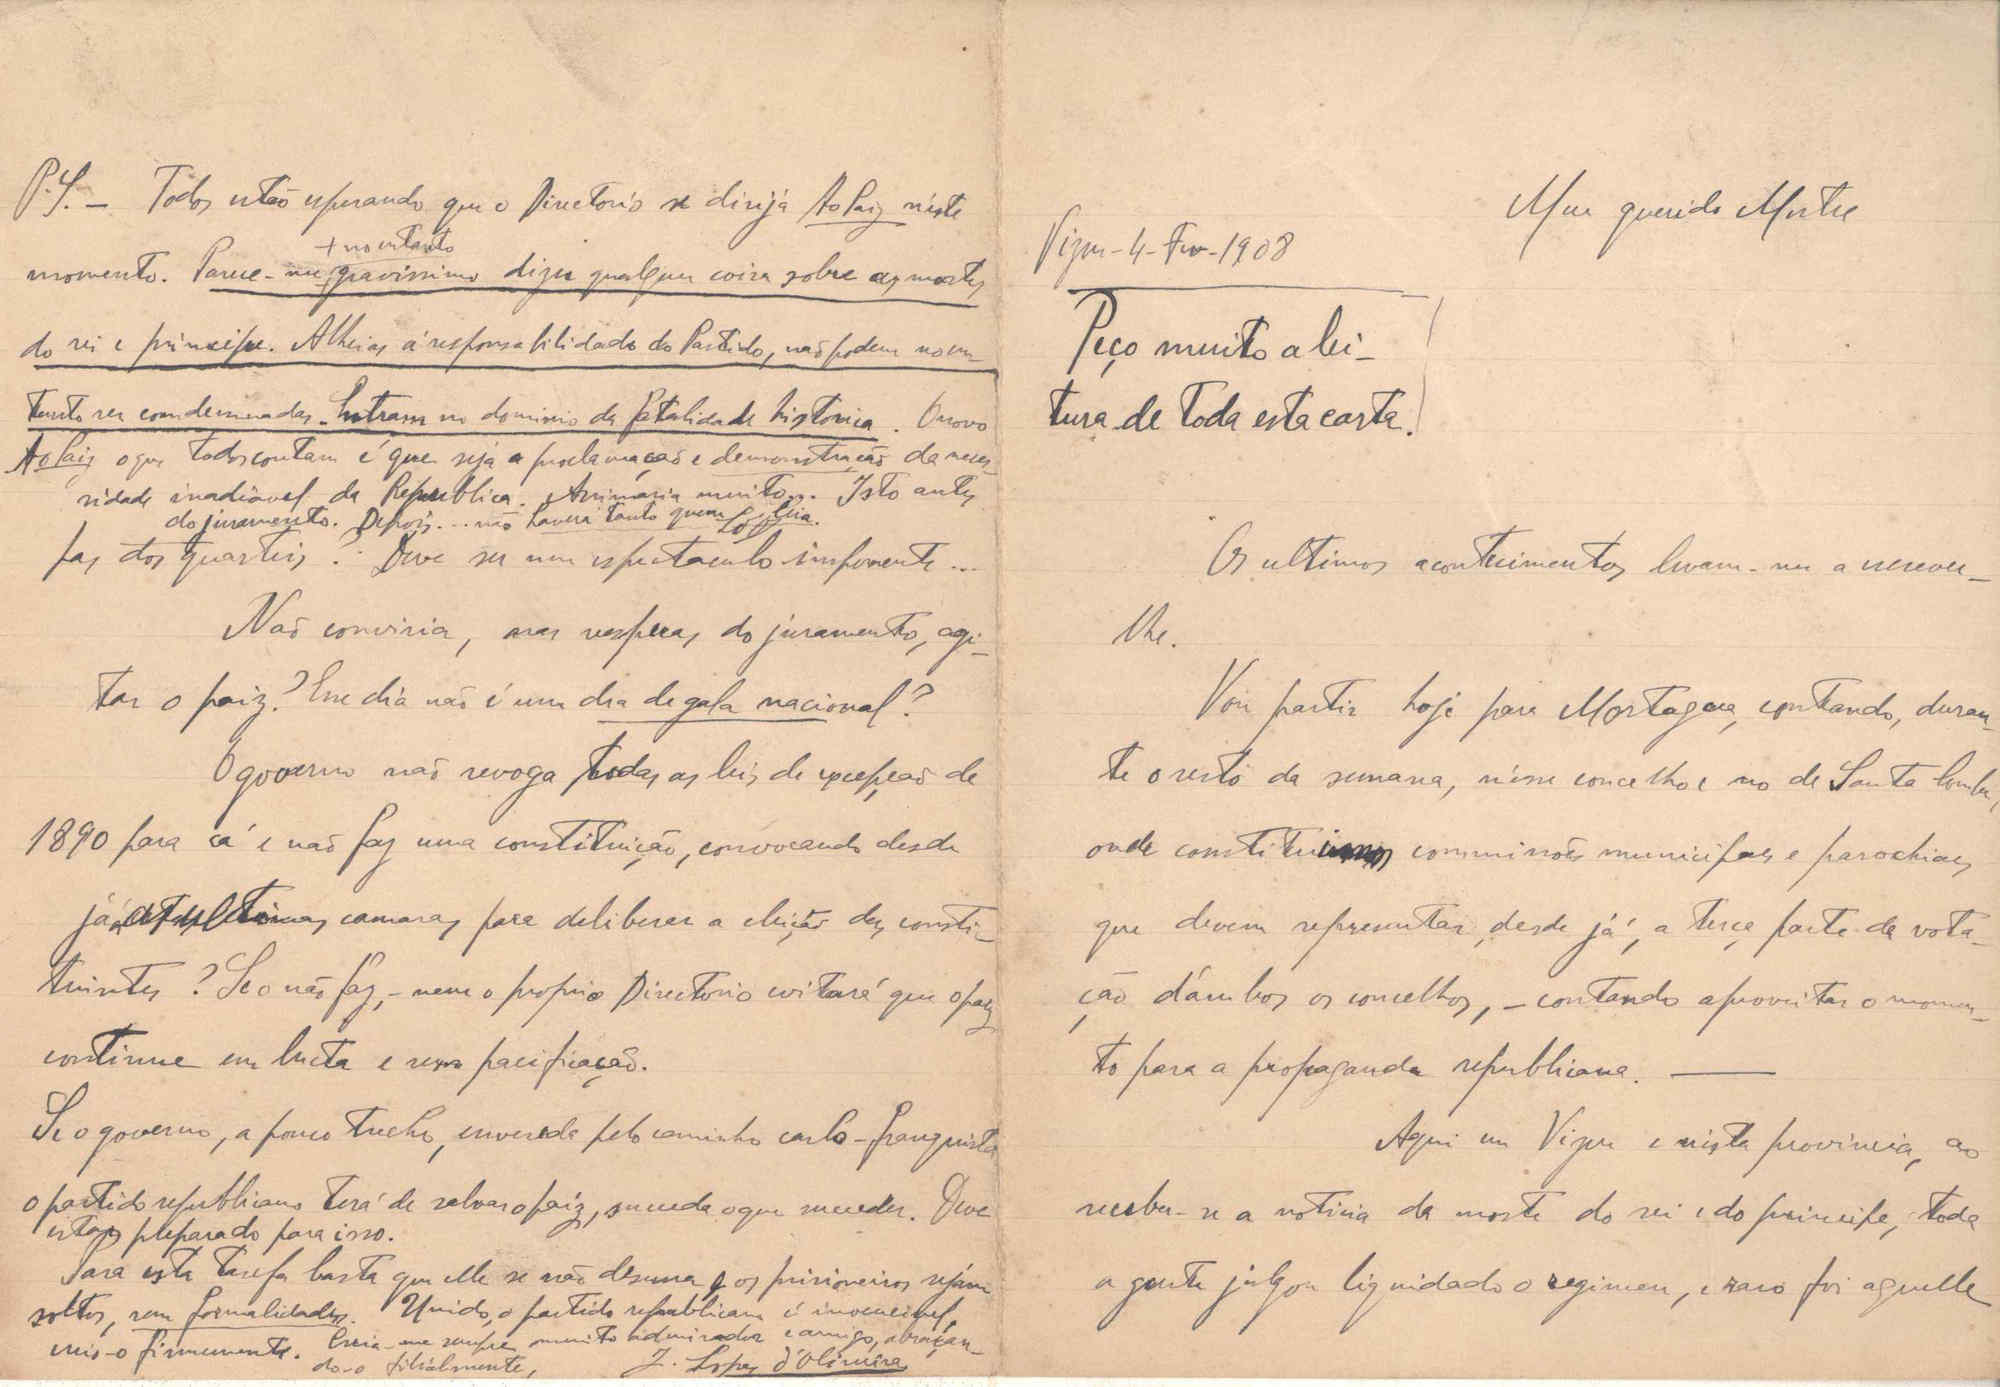 Meu querido Mestre
Vizeu-4-Fev-1908
Peço muito a lei-
tura de toda esta carta.
Os ultimos acontecimentos levam-me a escrever-
lhe.
Vou partir hoje para Mortagua, contando, duran-
te o resto da semana, n'esse concelho e no de Santa Comba,
onde commissões municipaes e parochiaes
que devem representar, desde já, a terça parte da vota-
ção d'ambos os concelhos, - contando aproveitar o momen-
to para a propaganda republicana. —
Aqui em Vizeu e n'esta provincia, ao
receber-se a noticia da morte do rei e do principe, toda
a gente julgou liquidado o regimen, e raro foi aquelle
P.S. - Todos estão esperando que o Directorio se dirija Ao Paiz n'este
+ no entanto
momento. Parece-me gravissimo dizer qualquer coisa sobre as mortes
do rei e principe. Alheias á responsabilidade do Partido, não podem no en-
tanto ser comdemnadas. Entram no dominio da fatalidade historica. O novo
Ao Paiz o que todos contam é que seja a proclamação e demonstração da neces-
sidade inadiavel da Republica. Animaria muito... Isto antes
do juramento. Depois... não haverá tanto quem o leia.
fas dos quarteis? Deve ser um espectaculo imponente...
Não conviria, nas vesperas do juramento, agi-
tar o paiz? Esse dia não é um dia de gala nacional?
O governo não revoga todas as leis de excepção de
1890 para cá e não faz uma constituição, convocando desde
já as ultimas camaras para deliberar a eleição das consti-
tuintes? Se o não faz, - nem o proprio Directorio evitará que o paiz
continue em lucta e sem pacificação.
Se o governo, a pouco trecho, envereda pelo caminho carlo-franquista
o partido republicano terá de salvar o paiz, succeda o que succeder. Deve
estar preparado para isso.
Para esta tarefa basta que elle se não desuna e os prisioneiros sejam
soltos, sem formalidades. Unido, o partido republicano é invencivel,
creio-o firmemente. Creia-me sempre muito admirador e amigo, abraçan-
do-o filialmente,
J. Lopes d'Oliveira